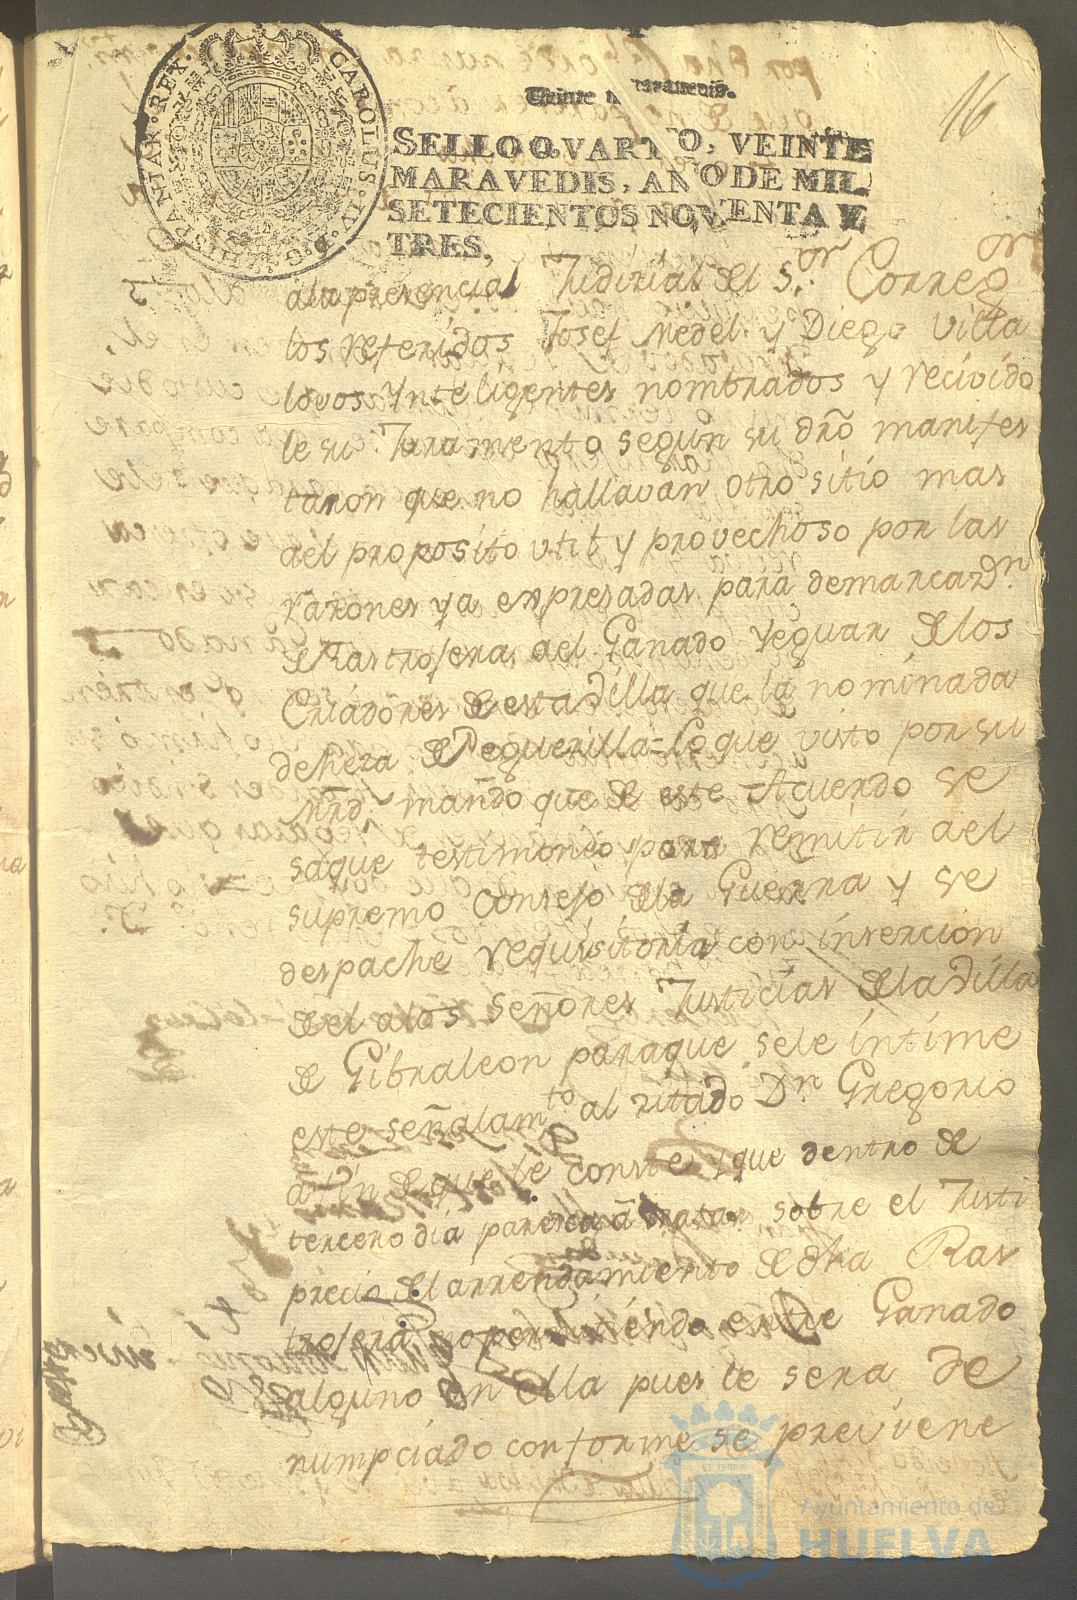 16
CAROLUS·IV·D·G·HISPANIAR·REX·
Veinte maravedis.
SELLO QVARTO, VEINTE
MARAVEDIS, AÑO DE MIL
SETECIENTOS NOVENTA Y
TRES.
ala presencia Judicial del S.or Correg.or
los referidos Josef Medel y Diego Villa
lovos Ynteligentes nombrados y recivido
le su Juramento segun su dro manifes
taron que no hallavan otro sitio mas
ael proposito util y provechoso por las
razones ya expresadas para demarcaz.on
de Rastrojera ael Ganado Yeguar de los
Criadores de esta Villa que la nominada
deheza de Peguerilla = Lo que visto por su
Mrd. mando que de este Acuerdo se
saque testimonio para remitir ael
supremo Consejo dela Guerra y se
despache requisitoria con insercion
del alos señores Justicias dela Villa
de Gibraleon para que sele intime
este señalam.to al zitado D.n Gregorio
afin de que le conste y que dentro de
tercero dia paresca a tratar sobre el Justi
precio del arrendamiento de dha Ras
trojera no permitiendo entre Ganado
alguno en ella pues le sera de
numpciado conforme se previene
Ayuntamiento de
HUELVA